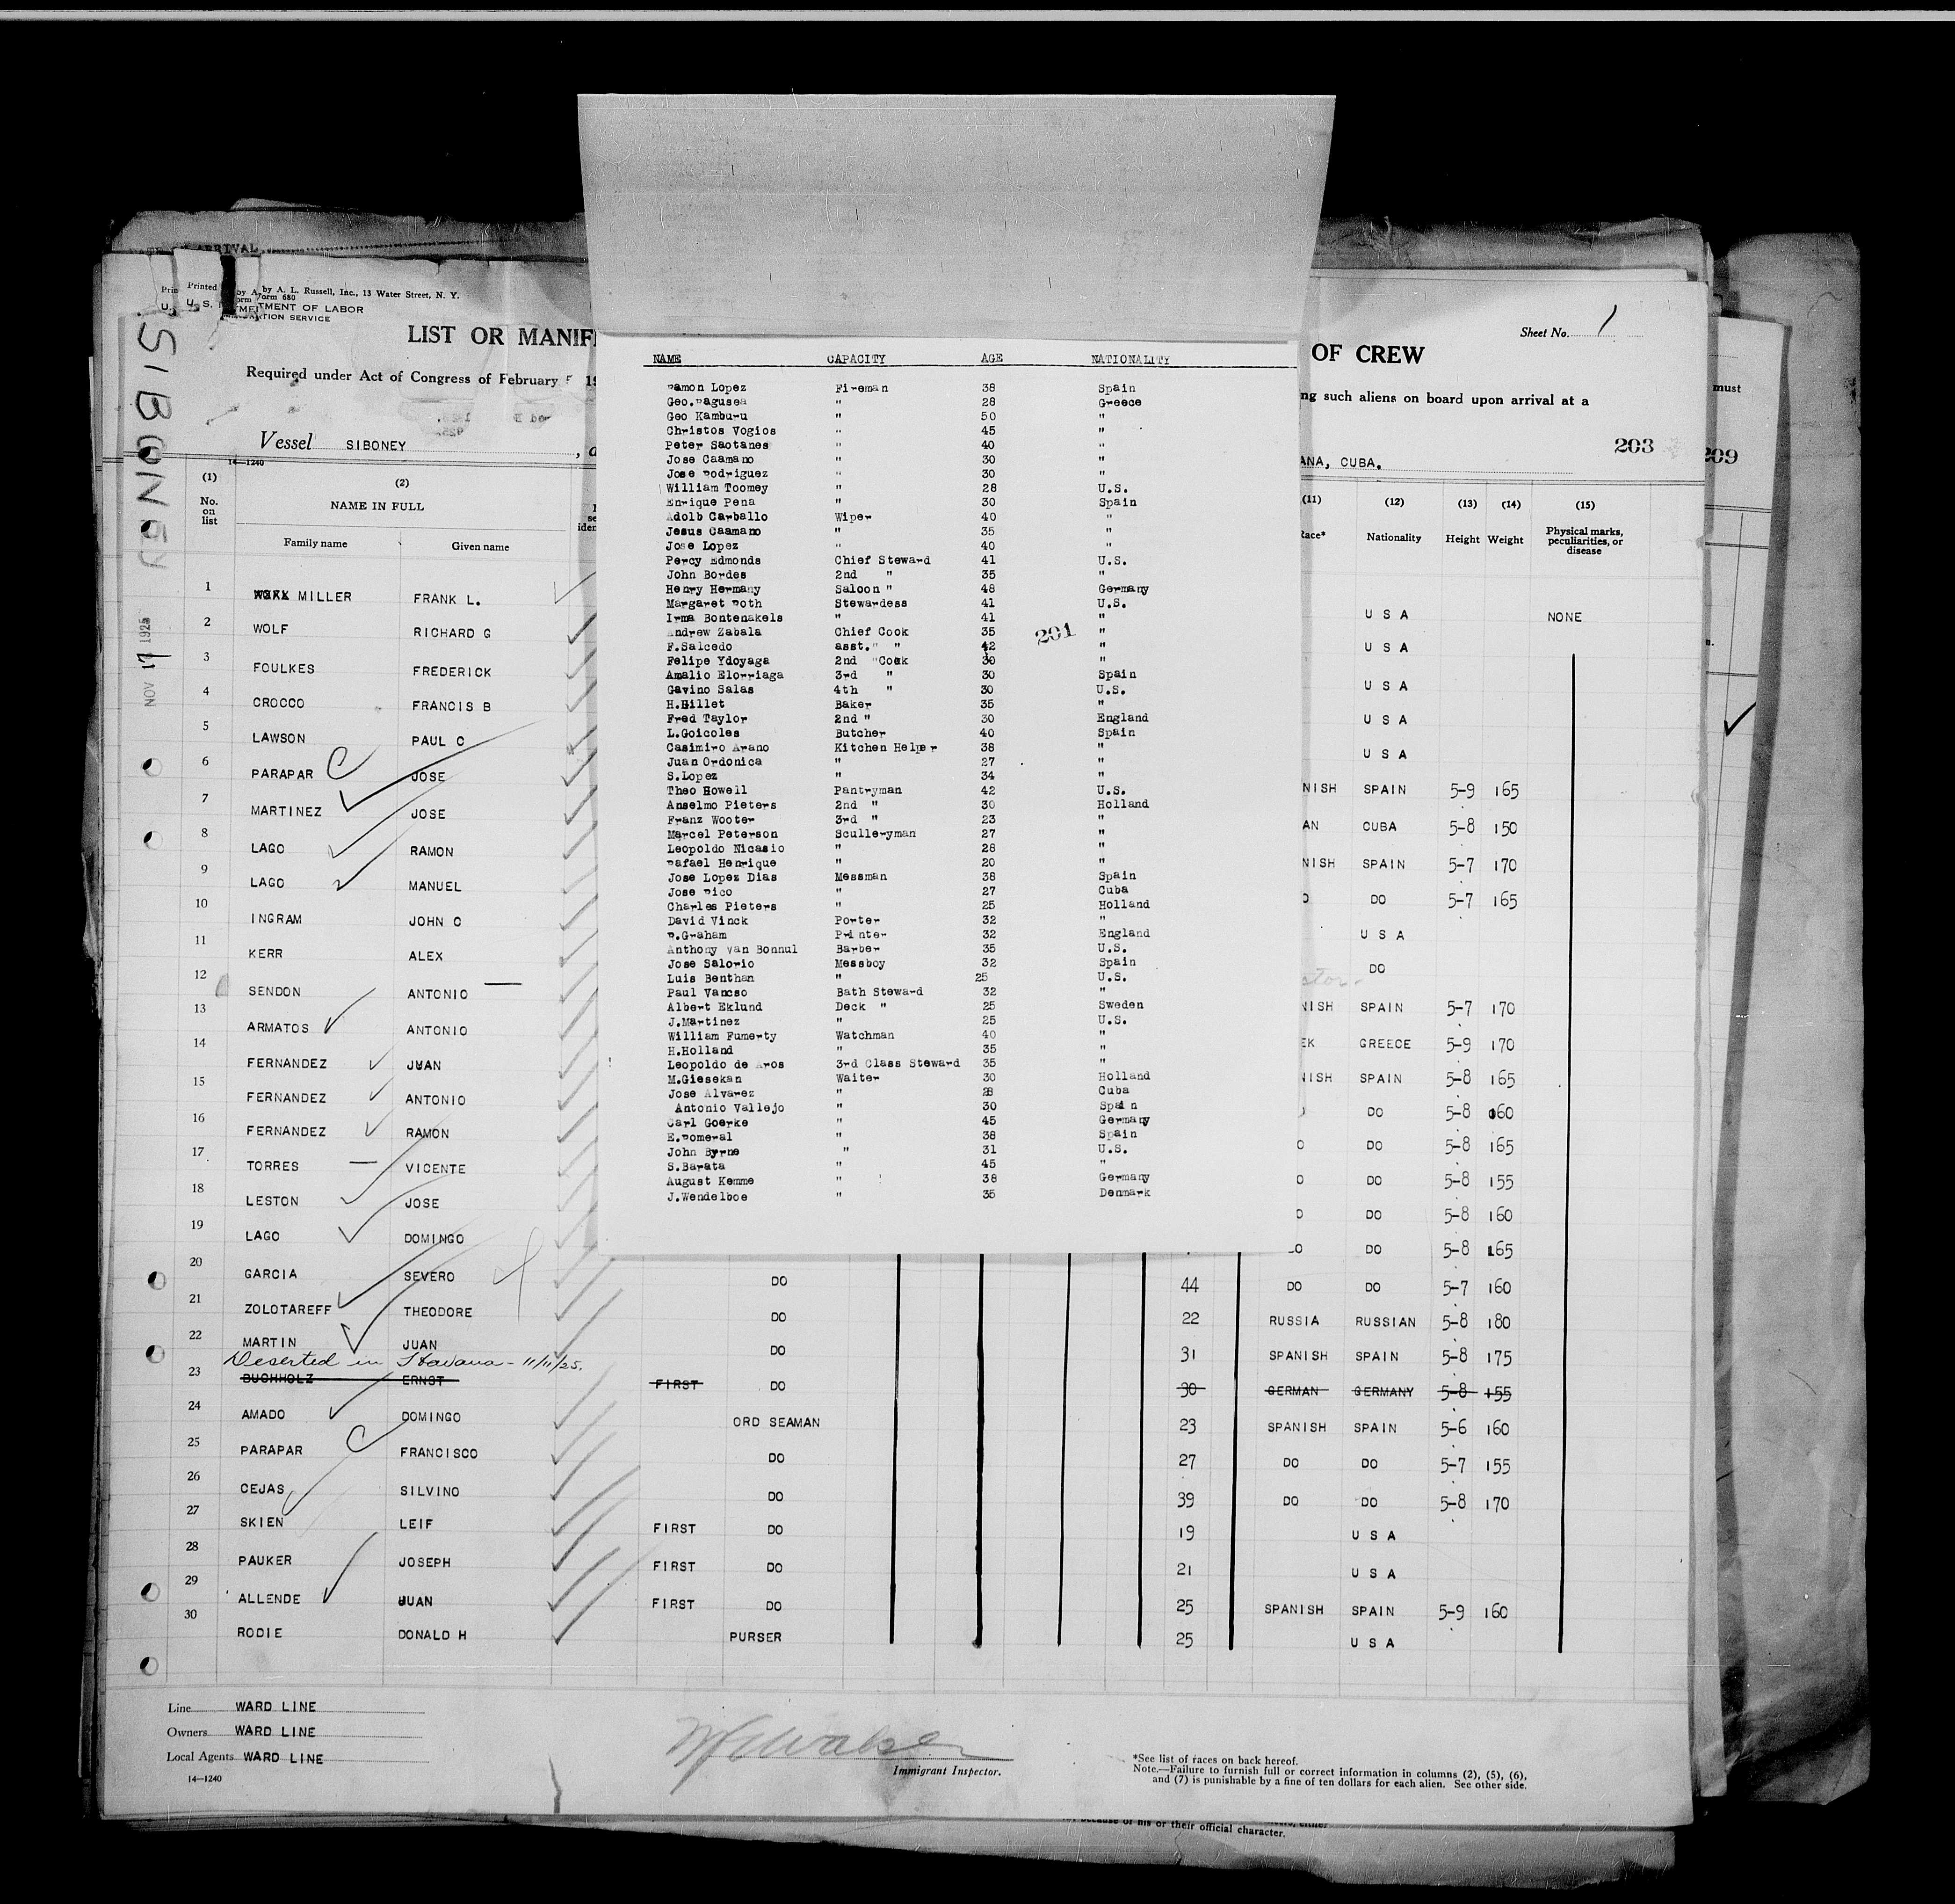 ARRIVAL
Printed by A. L. Russell, Inc., 13 Water Street, N. Y.
Form 680
LIST OR MANIF
OF CREW
Sheet No. 1
Required under Act of Congress of February
ng such aliens on board upon arrival at a
must
Vessel SIBONEY
ANA, CUBA.
203
209
SIBONEY
NOV 17 1925
14—1240
(1) (2) (11) (12) (13) (14) (15)
No. on list
NAME IN FULL
Family name Given name
Race* Nationality Height Weight Physical marks, peculiarities, or disease
1 MILLER FRANK L. U S A NONE
2 WOLF RICHARD G U S A
3 FOULKES FREDERICK U S A
4 CROCCO FRANCIS B U S A
5 LAWSON PAUL C U S A
6 PARAPAR C JOSE NISH SPAIN 5-9 165
7 MARTINEZ JOSE AN CUBA 5-8 150
8 LAGO RAMON NISH SPAIN 5-7 170
9 LAGO MANUEL O DO 5-7 165
10 INGRAM JOHN C U S A
11 KERR ALEX DO
12 SENDON ANTONIO NISH SPAIN 5-7 170
13 ARMATOS ANTONIO EK GREECE 5-9 170
14 FERNANDEZ JUAN NISH SPAIN 5-8 165
15 FERNANDEZ ANTONIO DO 5-8 160
16 FERNANDEZ RAMON O DO 5-8 165
17 TORRES VICENTE O DO 5-8 155
18 LESTON JOSE O DO 5-8 160
19 LAGO DOMINGO DO DO 5-8 165
20 GARCIA SEVERO DO 44 DO DO 5-7 160
21 ZOLOTAREFF THEODORE DO 22 RUSSIA RUSSIAN 5-8 180
22 MARTIN JUAN DO 31 SPANISH SPAIN 5-8 175
Deserted in Havana - 11/11/25.
23 BUCHHOLZ ERNST FIRST DO 30 GERMAN GERMANY 5-8 155
24 AMADO DOMINGO ORD SEAMAN 23 SPANISH SPAIN 5-6 160
25 PARAPAR C FRANCISCO DO 27 DO DO 5-7 155
26 CEJAS SILVINO DO 39 DO DO 5-8 170
27 SKIEN LEIF FIRST DO 19 U S A
28 PAUKER JOSEPH FIRST DO 21 U S A
29 ALLENDE JUAN FIRST DO 25 SPANISH SPAIN 5-9 160
30 RODIE DONALD H PURSER 25 U S A
NAME CAPACITY AGE NATIONALITY
Ramon Lopez Fireman 38 Spain
Geo.Ragusea " 28 Greece
Geo Kamburu " 50 "
Christos Vogios " 45 "
Peter Saotanes " 40 "
Jose Caamano " 30 "
Jose Rodriguez " 30 "
William Toomey " 28 U.S.
Enrique Pena " 30 Spain
Adolb Carballo Wiper 40 "
Jesus Caamano " 35 "
Jose Lopez " 40 "
Percy Edmonds Chief Steward 41 U.S.
John Bordes 2nd " 35 "
Henry Hermany Saloon " 48 Germany
Margaret Roth Stewardess 41 U.S.
Irma Bontenakels " 41 "
Andrew Zabala Chief Cook 35 "
201
F.Salcedo asst. " " 42 "
Felipe Ydoyaga 2nd "Cook 30 "
Amalio Elorriaga 3rd " 30 Spain
Gavino Salas 4th " 30 U.S.
H.Billet Baker 35 "
Fred Taylor 2nd " 30 England
L.Goicoles Butcher 40 Spain
Casimiro Arano Kitchen Helper 38 "
Juan Ordonica " 27 "
S.Lopez " 34 "
Theo Howell Pantryman 42 U.S.
Anselmo Pieters 2nd " 30 Holland
Franz Wooter 3rd " 23 "
Marcel Peterson Sculleryman 27 "
Leopoldo Nicasio " 28 "
Rafael Henrique " 20 "
Jose Lopez Dias Messman 38 Spain
Jose Rico " 27 Cuba
Charles Pieters " 25 Holland
David Vinck Porter 32 "
R.Graham Printer 32 England
Anthony van Bonnul Barber 35 U.S.
Jose Salorio Messboy 32 Spain
Luis Benthan " 25 U.S.
Paul Vancso Bath Steward 32 "
Albert Eklund Deck " 25 Sweden
J.Martinez " 25 U.S.
William Fumerty Watchman 40 "
H.Holland " 35 "
Leopoldo de Aros 3rd Class Steward 35 "
M.Giesekan Waiter 30 Holland
Jose Alvarez " 28 Cuba
Antonio Vallejo " 30 Spain
Carl Goerke " 45 Germany
E.Romeral " 38 Spain
John Byrne " 31 U.S.
S.Barata " 45 "
August Kemme " 38 Germany
J.Wendelboe " 35 Denmark
Line WARD LINE
Owners WARD LINE
Local Agents WARD LINE
14—1240
Immigrant Inspector.
*See list of races on back hereof.
Note.—Failure to furnish full or correct information in columns (2), (5), (6),
and (7) is punishable by a fine of ten dollars for each alien. See other side.
of his or their official character.